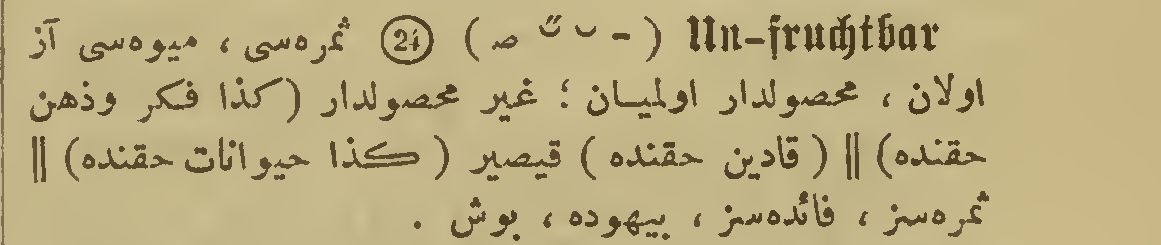 Un-fruchtbar (– ᴗ ᴗ̈ ص) (24) ثمره‌سی ، میوه‌سی آز
اولان ، محصولدار اولمیـان ؛ غیر محصولدار (كذا فـكر وذهن
حقنده) || (قادین حقنده) قیصیر (كذا حیوانات حقنده) ||
ثمره‌سز ، فائده‌سز ، بیهوده ، بوش .